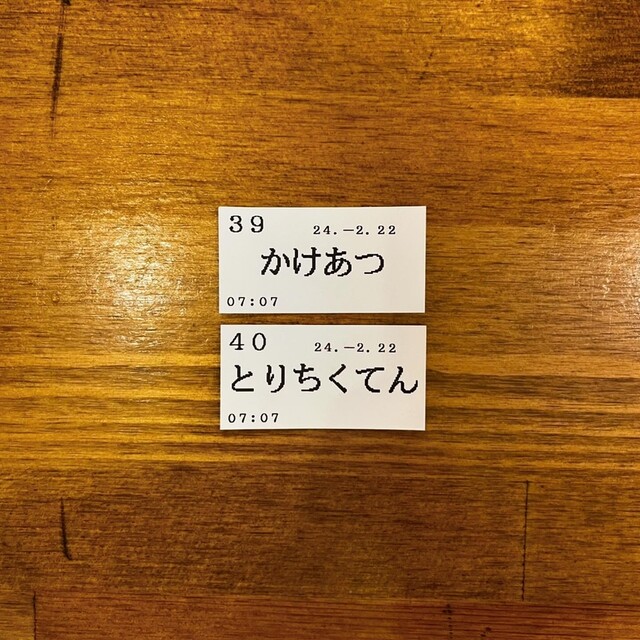 39 24.－2.22
かけあつ
07:07
40 24.－2.22
とりちくてん
07:07